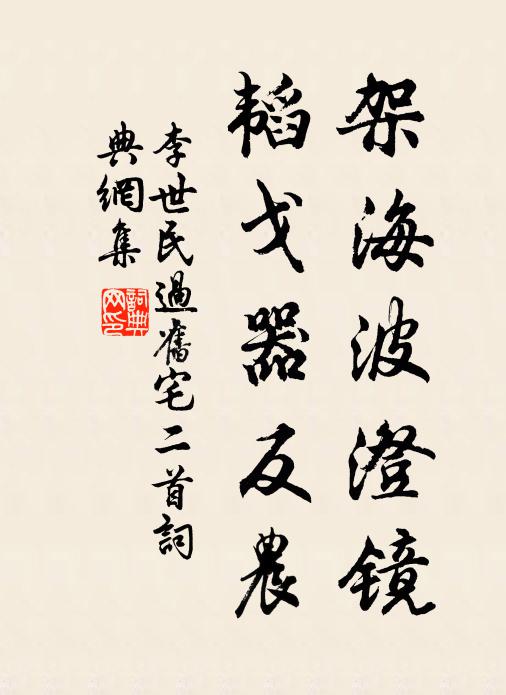 架海波澄镜
韬戈器反農
李世民過舊宅二首詞
典網集
詞典
网印